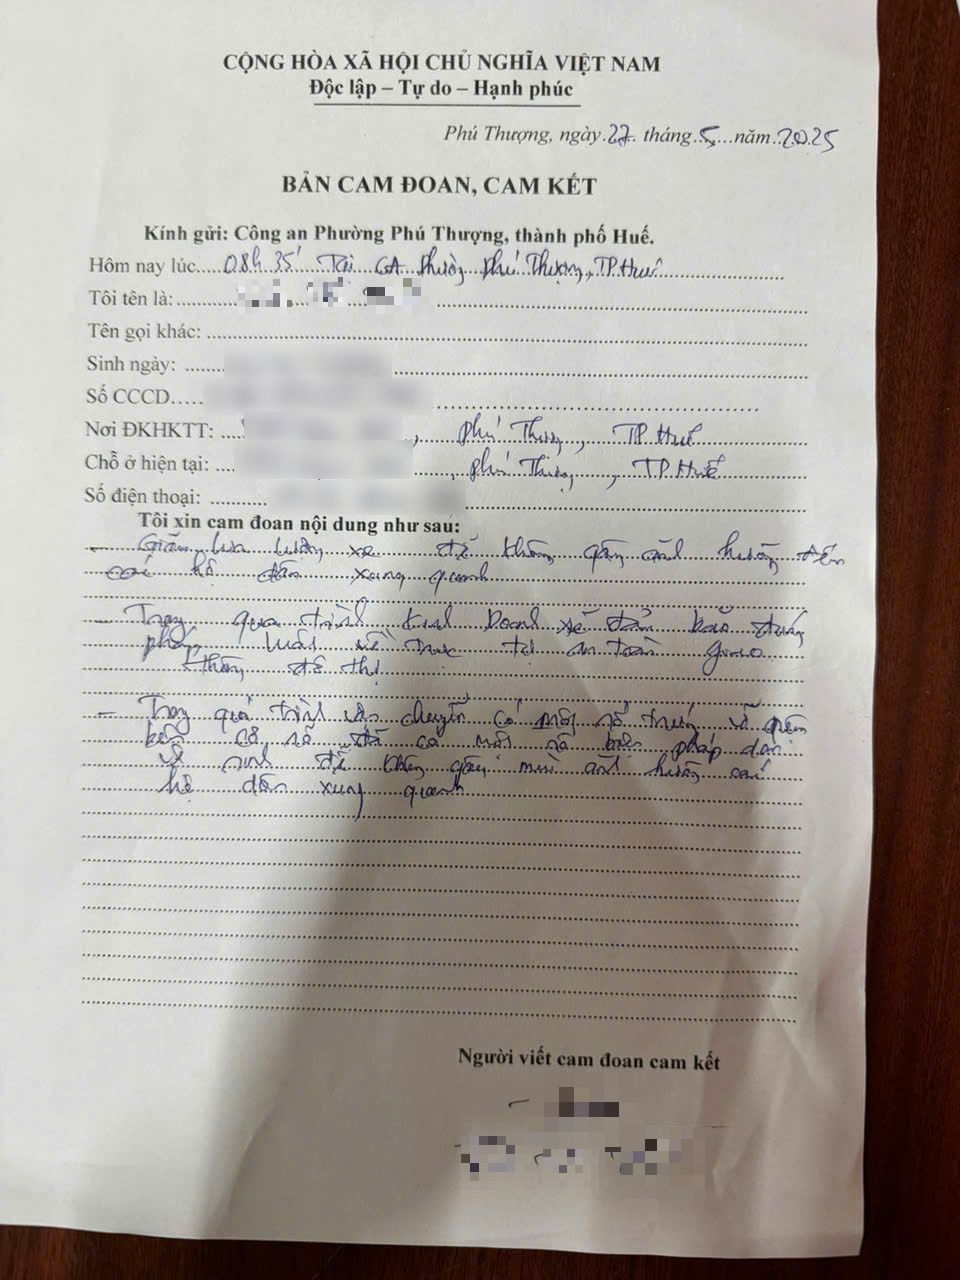 CỘNG HÒA XÃ HỘI CHỦ NGHĨA VIỆT NAM
Độc lập – Tự do – Hạnh phúc
Phú Thượng, ngày 27 tháng 5 năm 2025
BẢN CAM ĐOAN, CAM KẾT
Kính gửi: Công an Phường Phú Thượng, thành phố Huế.
Hôm nay lúc 08h 35' Tại CA phường Phú Thượng, TP. Huế
Tôi tên là:
Tên gọi khác:
Sinh ngày:
Số CCCD
Nơi ĐKHKTT: , Phú Thượng, TP. Huế
Chỗ ở hiện tại: , Phú Thượng, TP. Huế
Số điện thoại:
Tôi xin cam đoan nội dung như sau:
- Giảm lưu lượng xe để không gây ảnh hưởng đến
các hộ dân xung quanh
- Trong quá trình kinh doanh sẽ đảm bảo đúng
pháp luật về trật tự an toàn giao
thông đô thị
- Trong quá trình vận chuyển có một số trường
cơ sở đã có một số biện pháp dọn
vệ sinh để không gây mùi ảnh hưởng các
hộ dân xung quanh
Người viết cam đoan cam kết